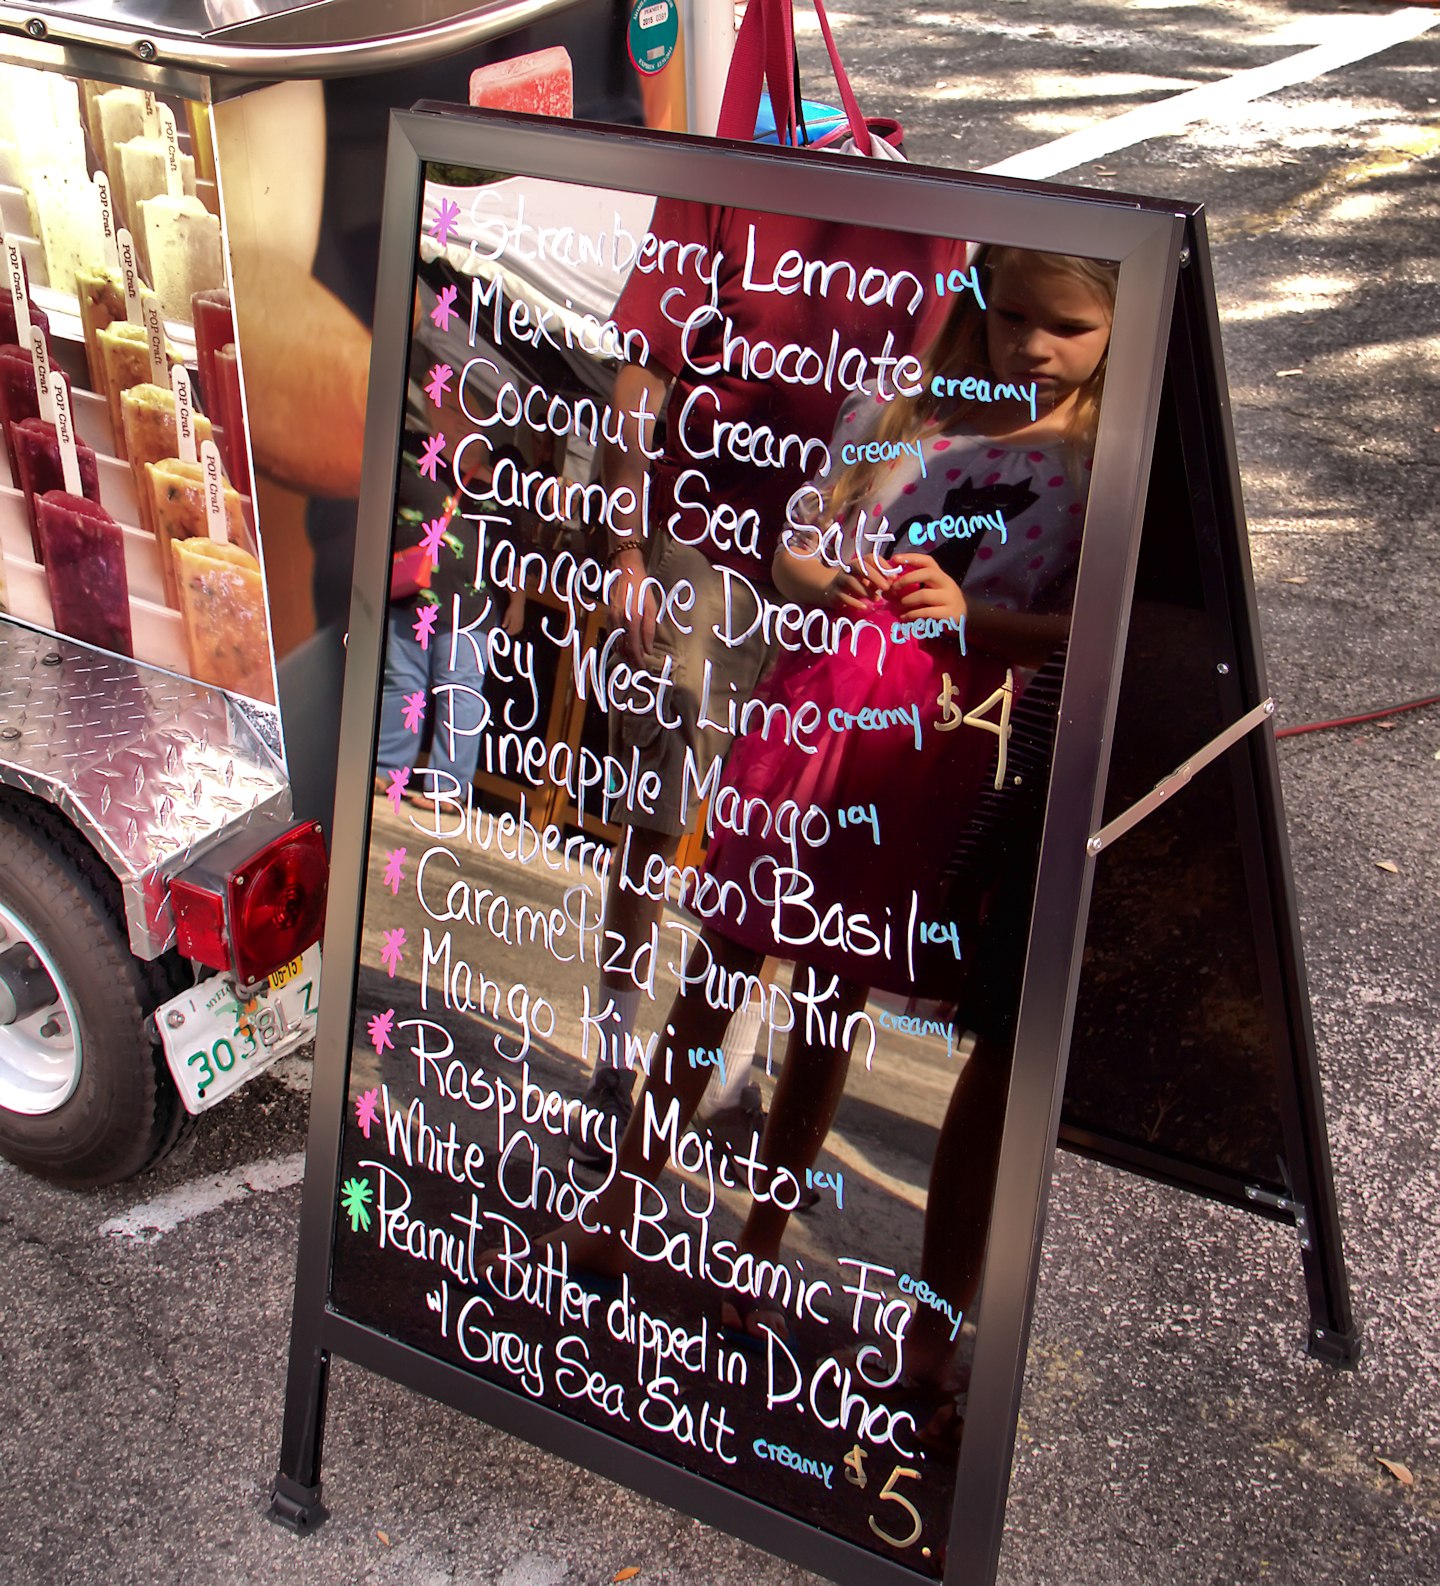 Strawberry Lemon icy
Mexican Chocolate creamy
Coconut Cream creamy
Caramel Sea Salt creamy
Tangerine Dream creamy
Key West Lime creamy $4.
Pineapple Mango icy
Blueberry Lemon Basil icy
Caramelizd Pumpkin creamy
Mango Kiwi icy
Raspberry Mojito icy
White Choc. Balsamic Fig creamy
Peanut Butter dipped in D.Choc.
w/ Grey Sea Salt creamy $5.
POP Craft
POP Craft
POP Craft
POP Craft
POP Craft
POP Craft
POP Craft
POP Craft
POP Craft
06-15